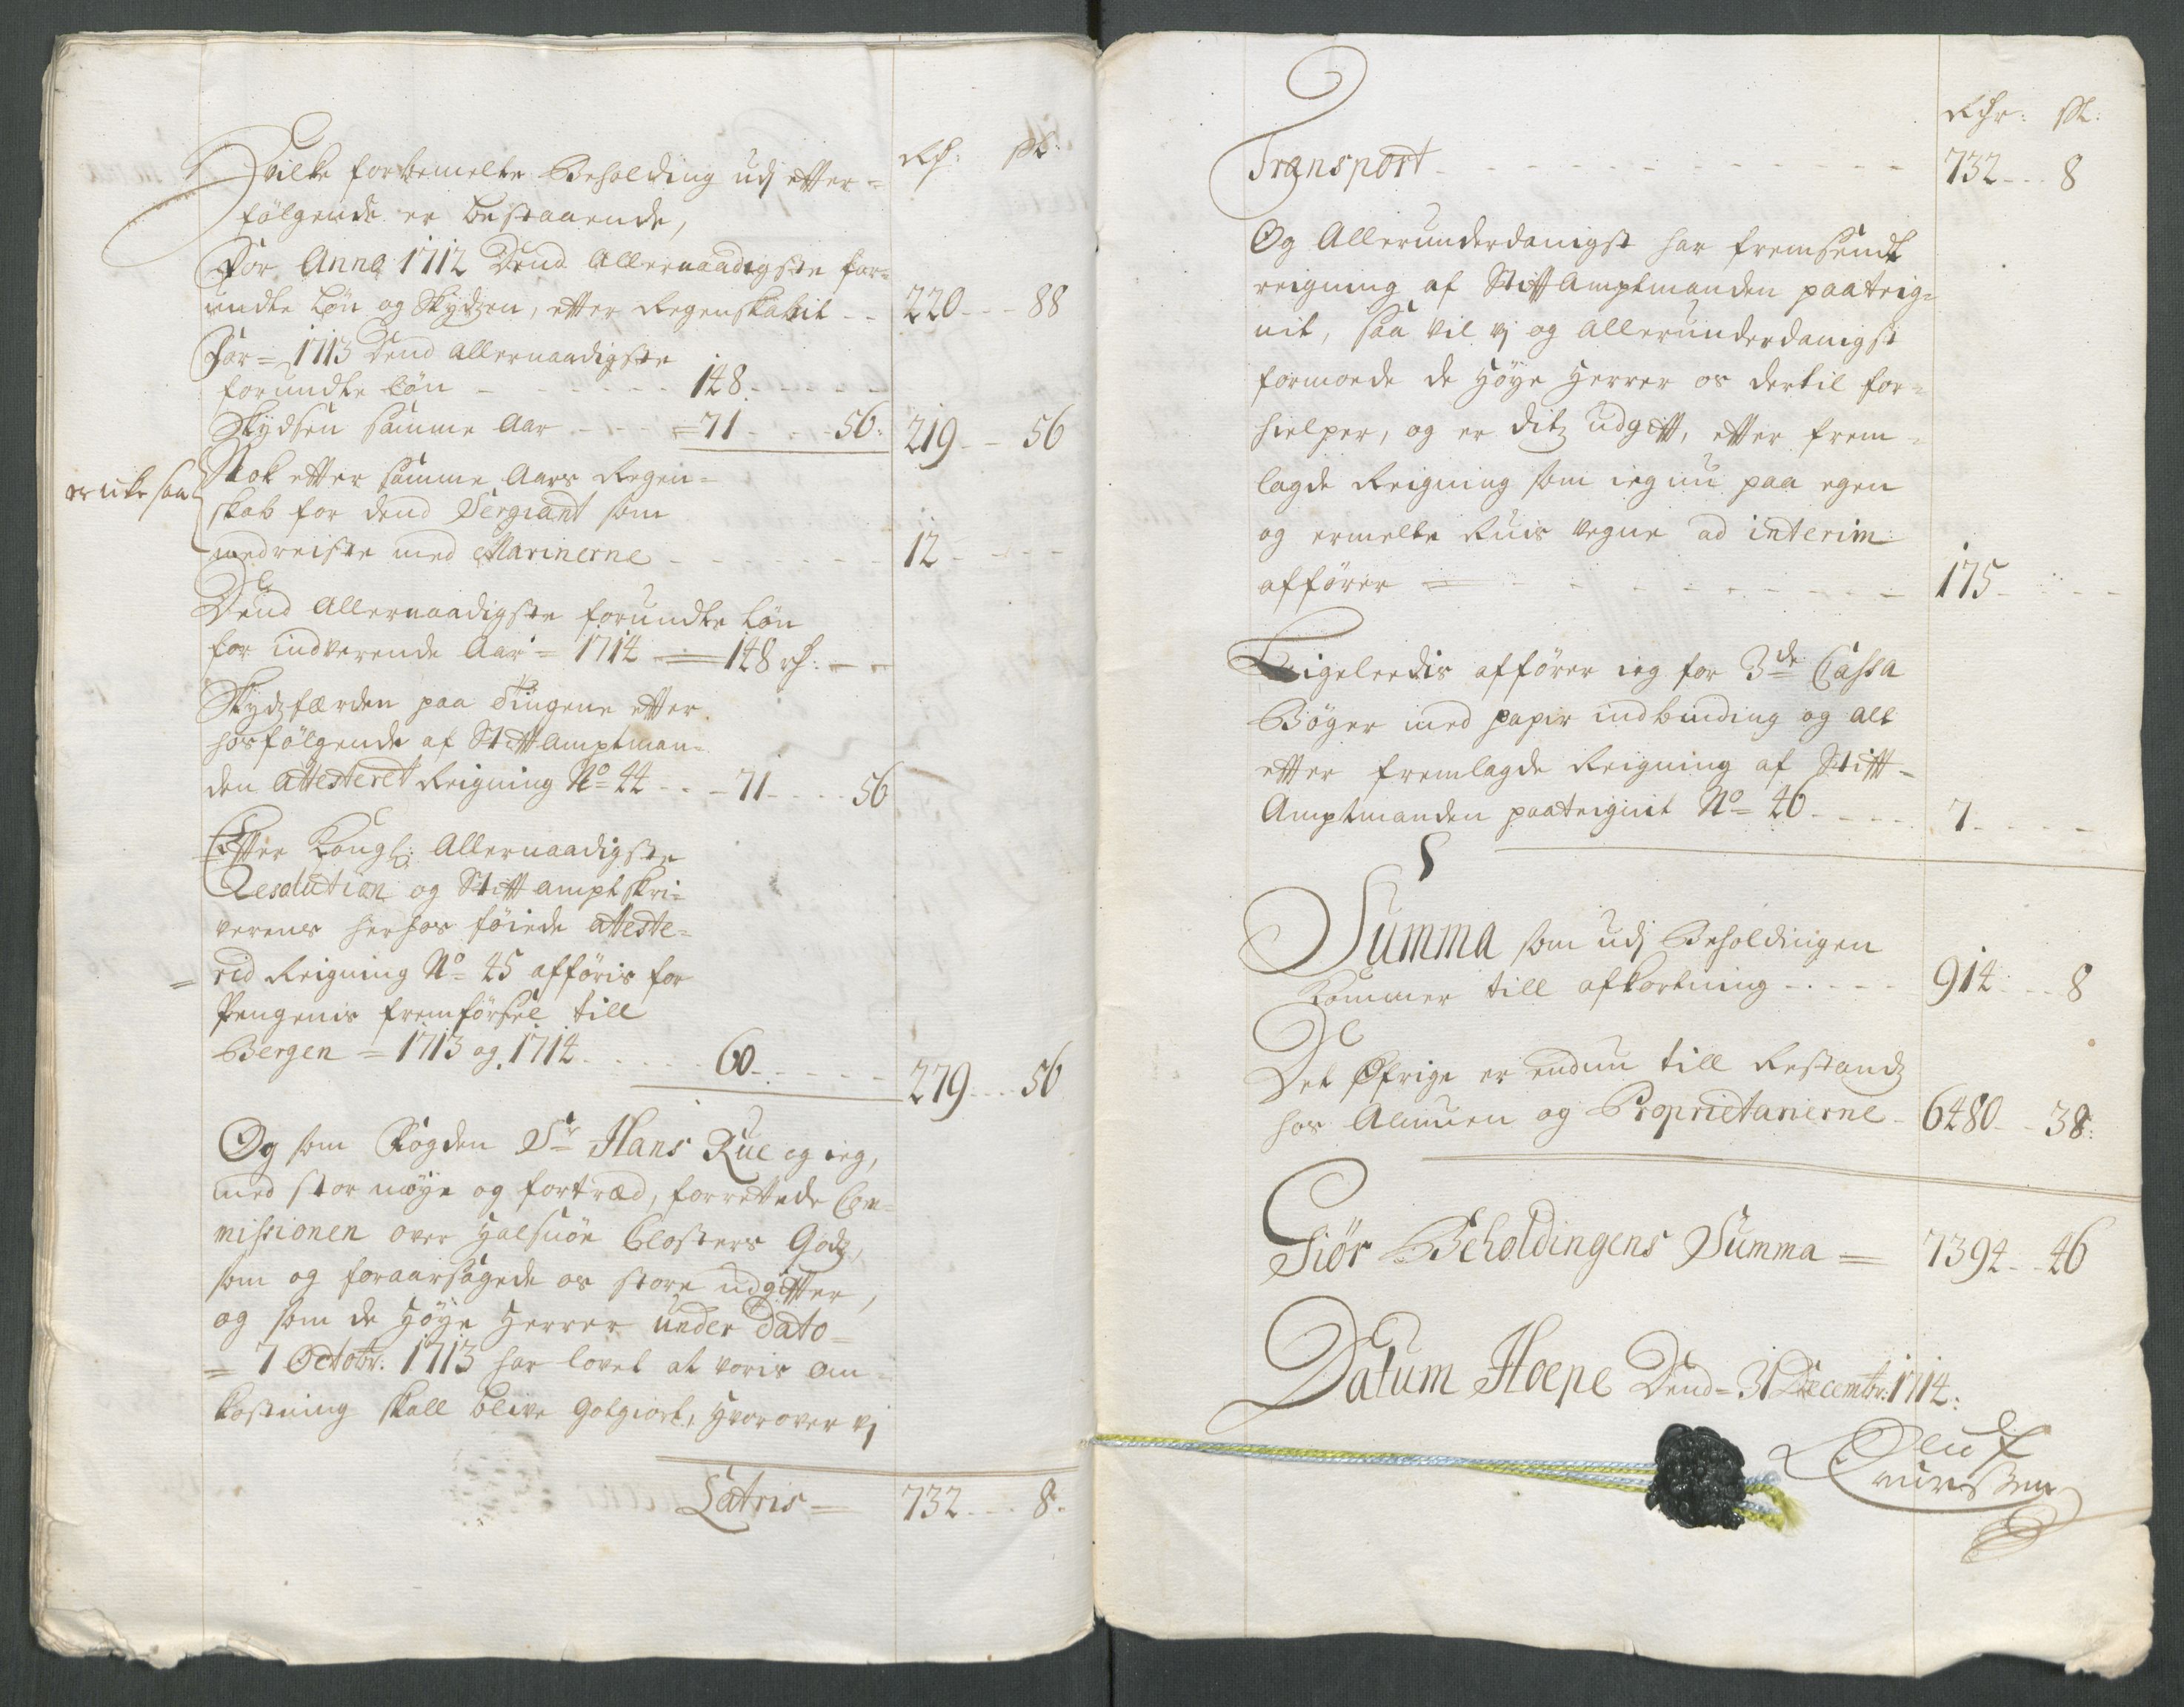 Rd: sk:
Hvilke forbemelte Beholding udj efter=
følgende er bestaaende,
For Anno 1712 Dend Allernaadigste for=
undte Løn og Skydzen, efter Regenskabit - - 220 - - - 88
For = 1713 Dend allernaadigste
forundte løn - - - - - 148. - - - -
Skydsen samme Aar - - - - =71 - - - 56: 219 - - 56
Nok efter samme Aars Regen=
er icke saa
skab for dend Sergiant som
medreiste med Marinerne - - - - - - - 12 - - - -
Dend Allernaadigste forundte Løn
for indverende Aar = 1714 = 148 rd: - -
Skydzfærden paa Tingene efter
hosfølgende af Stiftamptman=
den attesteret Reigning No= 44 - - - 71 - - - - 56
Efter Kongl: Allernaadigste
Resolution og Stiftamptskri=
verens herhos føiede atteste=
= rid Reigning No= 45 afføris for
Pengenis fremførsel till
Bergen = 1713 og 1714 - - - - - 60 - - - - - 279 - - - 56
Og som Fogden Sr= Hans Rue og ieg,
med stor møye og fortræd, forrettede Com=
missionen over Halsnøe Closters Godz,
som og foraarsagede os store udgifter,
og som de Høye Herrer under Dato=
= 7 Octobr: 1713 har lovet at voris om=
kostning skall blive Gotgiort, hvorover vj
Latris = 732 - - - 8.
Rdr: sk:
Transport - - - - - - - - - - 732 - - - 8
Og Allerunderdanigst har fremsendt
reigning af StiftAmptmanden paateig=
nit, saa vil vj og allerunderdanigst
formode de Høye Herrer os dertil for=
hielper, og er ditz udgift, efter frem=
lagde Reigning som ieg nu paa egen
og ermelte Ruis vegne ad interim
affører = - - - - - - - - 175 - - - -
Ligeledis affører ieg for 3de Cassa
Bøger med papir indbinding og alt
efter fremlagde Reigning af Stift=
Amptmanden paateignit No= 46 - - - - 7 - - - - -
Summa som udj Beholdingen
kommer till afkortning - - - - - 914 - - - 8
Det Øfrige er endnu till Restandz
hos Almuen og Proprietarierne - 6480 - - 38:
Giør Beholdingens Summa = 7394 - - 46
Datum Hoepe Dend = 31 Decembr: 1714:
Oluf